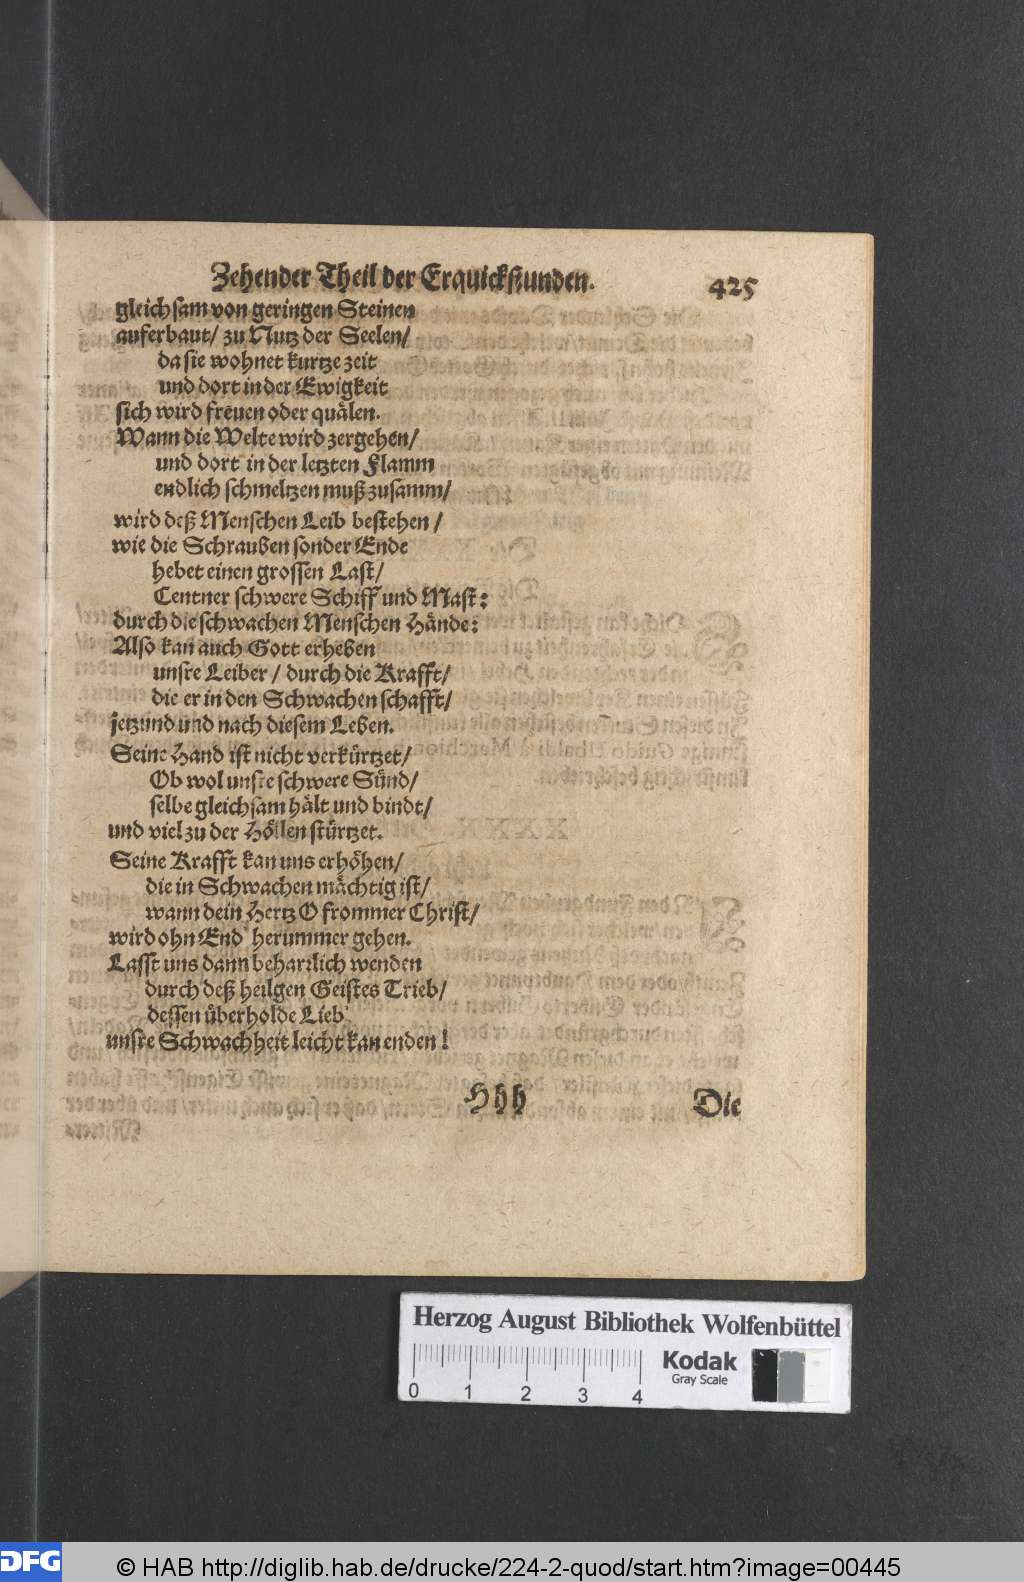 Zehender Theil der Erquickstunden. 425
gleichsam von geringen Steinen
auferbaut/ zu Nutz der Seelen/
da sie wohnet kurtze zeit
und dort in der Ewigkeit
sich wird freuen oder quälen.
Wann die Welte wird zergehen/
und dort in der letzten Flamm
endlich schmeltzen muß zusamm/
wird deß Menschen Leib bestehen/
wie die Schrauben sonder Ende
hebet einen grossen Last/
Centner schwere Schiff und Mast:
durch die schwachen Menschen Hände:
Also kan auch Gott erheben
unsre Leiber/ durch die Krafft/
die er in den Schwachen schafft/
jetzund und nach diesem Leben.
Seine Hand ist nicht verkürtzet/
Ob wol unsre schwere Sünd/
selbe gleichsam hält und bindt/
und viel zu der Höllen stürtzet.
Seine Krafft kan uns erhöhen/
die in Schwachen mächtig ist/
wann dein Hertz O frommer Christ/
wird ohn End' herummer gehen.
Lasst uns dann beharrlich wenden
durch deß heilgen Geistes Trieb/
dessen überholde Lieb
unsre Schwachheit leicht kan enden!
Hhh Die
Herzog August Bibliothek Wolfenbüttel
Kodak
Gray Scale
0 1 2 3 4
DFG © HAB http://diglib.hab.de/drucke/224-2-quod/start.htm?image=00445